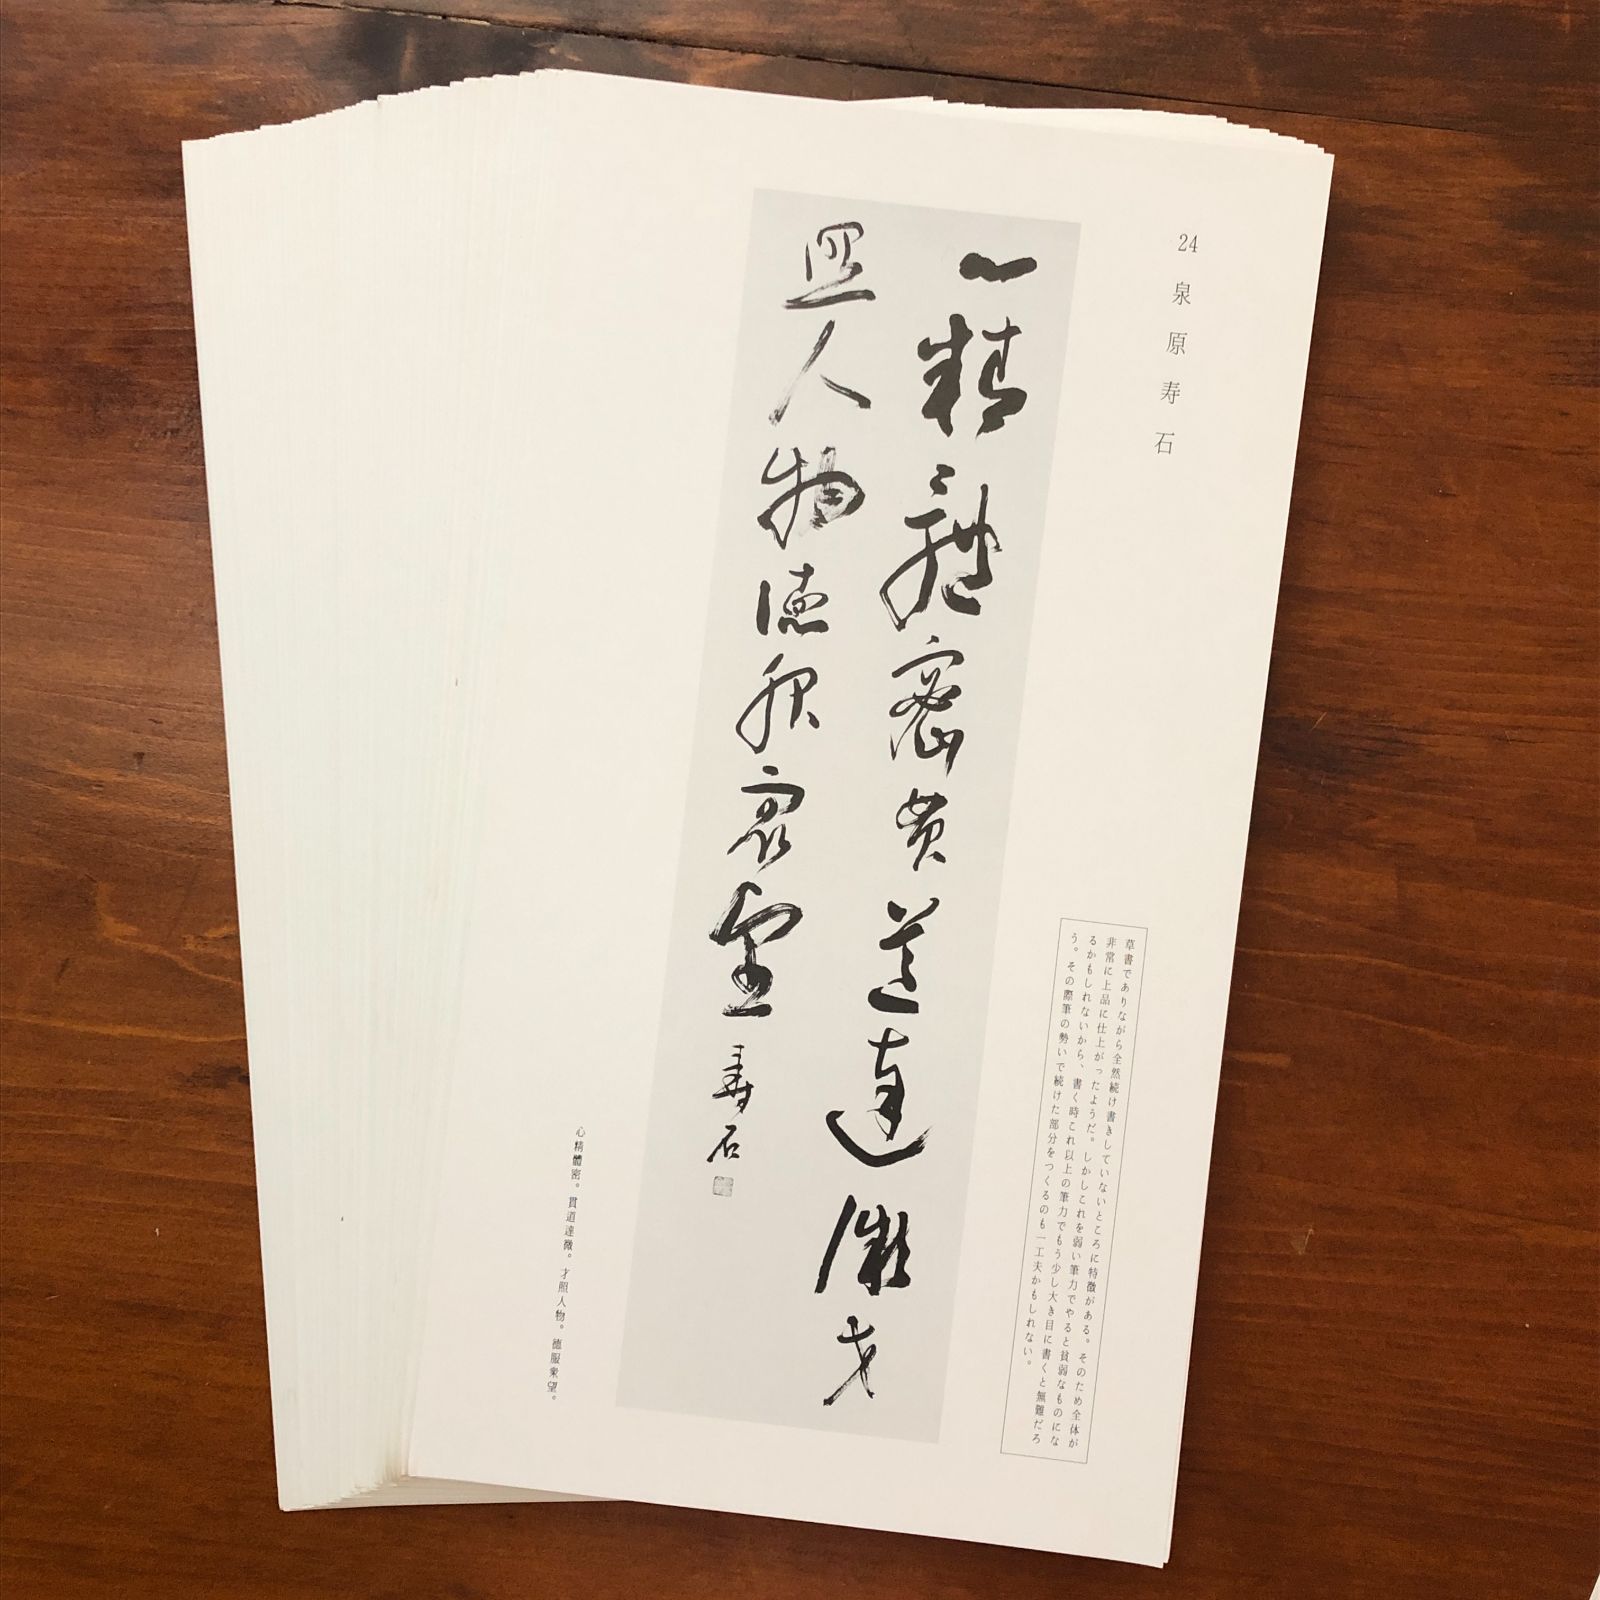 24 泉原寿石
草書でありながら全然続け書きしていないところに特徴がある。そのため全体が
非常に上品に仕上がったようだ。しかしこれを弱い筆力でやると貧弱なものにな
るかもしれないから、書く時これ以上の筆力でもう少し大き目に書くと無難だろ
う。その際筆の勢いで続けた部分をつくるのも一工夫かもしれない。
心精體密貫道達微才
照人物徳服衆望 寿石
心精體密。貫道達微。才照人物。徳服衆望。